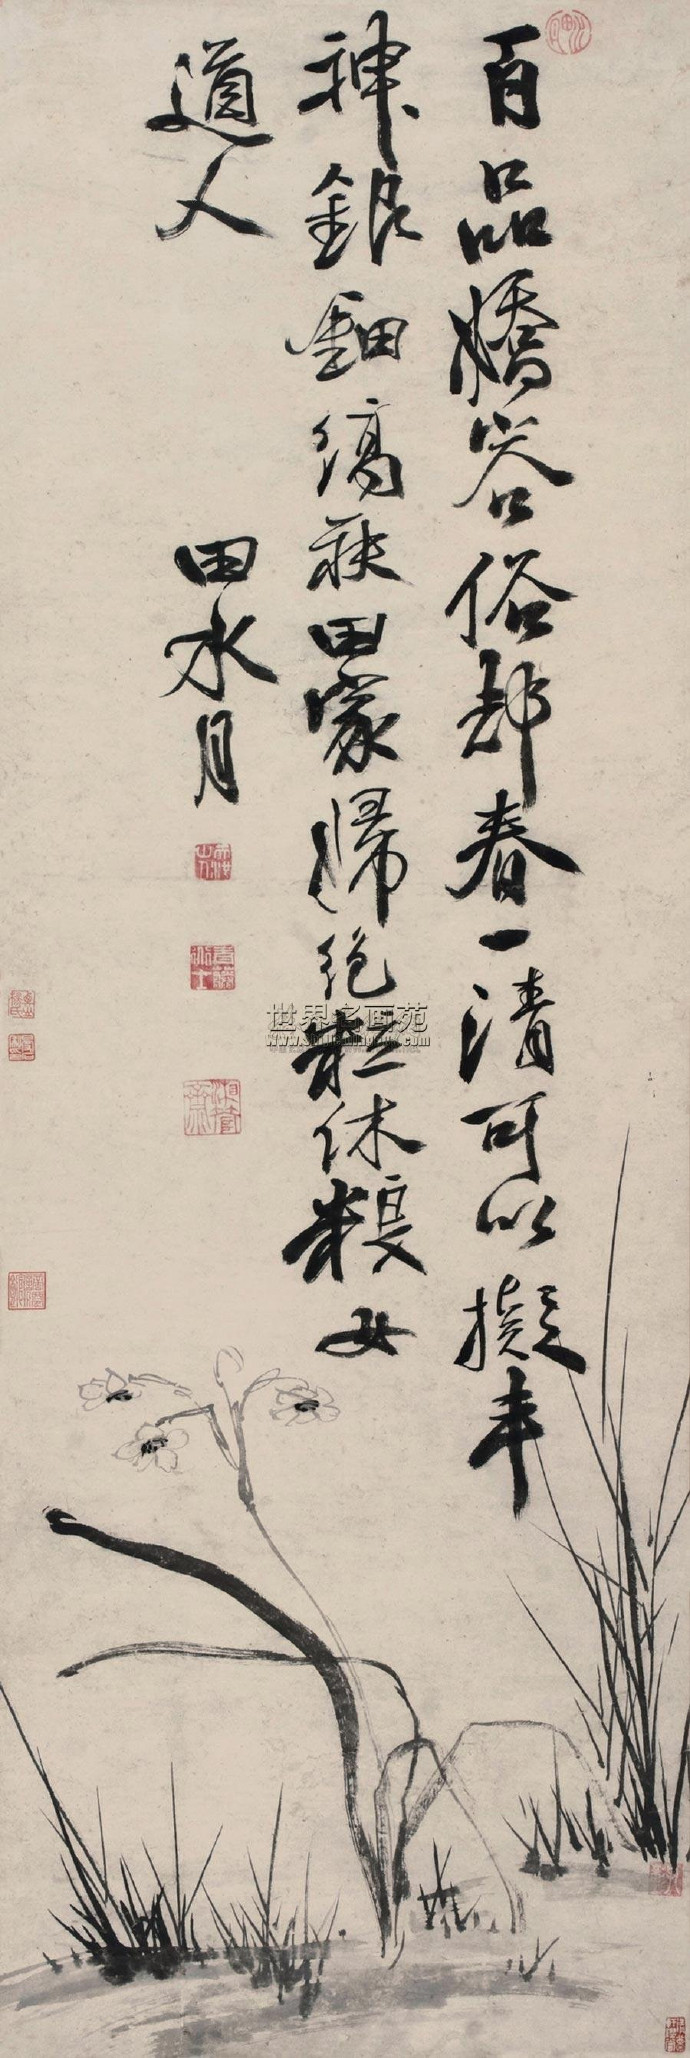 百品嬌容俗却春一清可以擬丰
神銀鈿縞袂田家婦絕粒休糧女
道人
田水月
世界名画苑